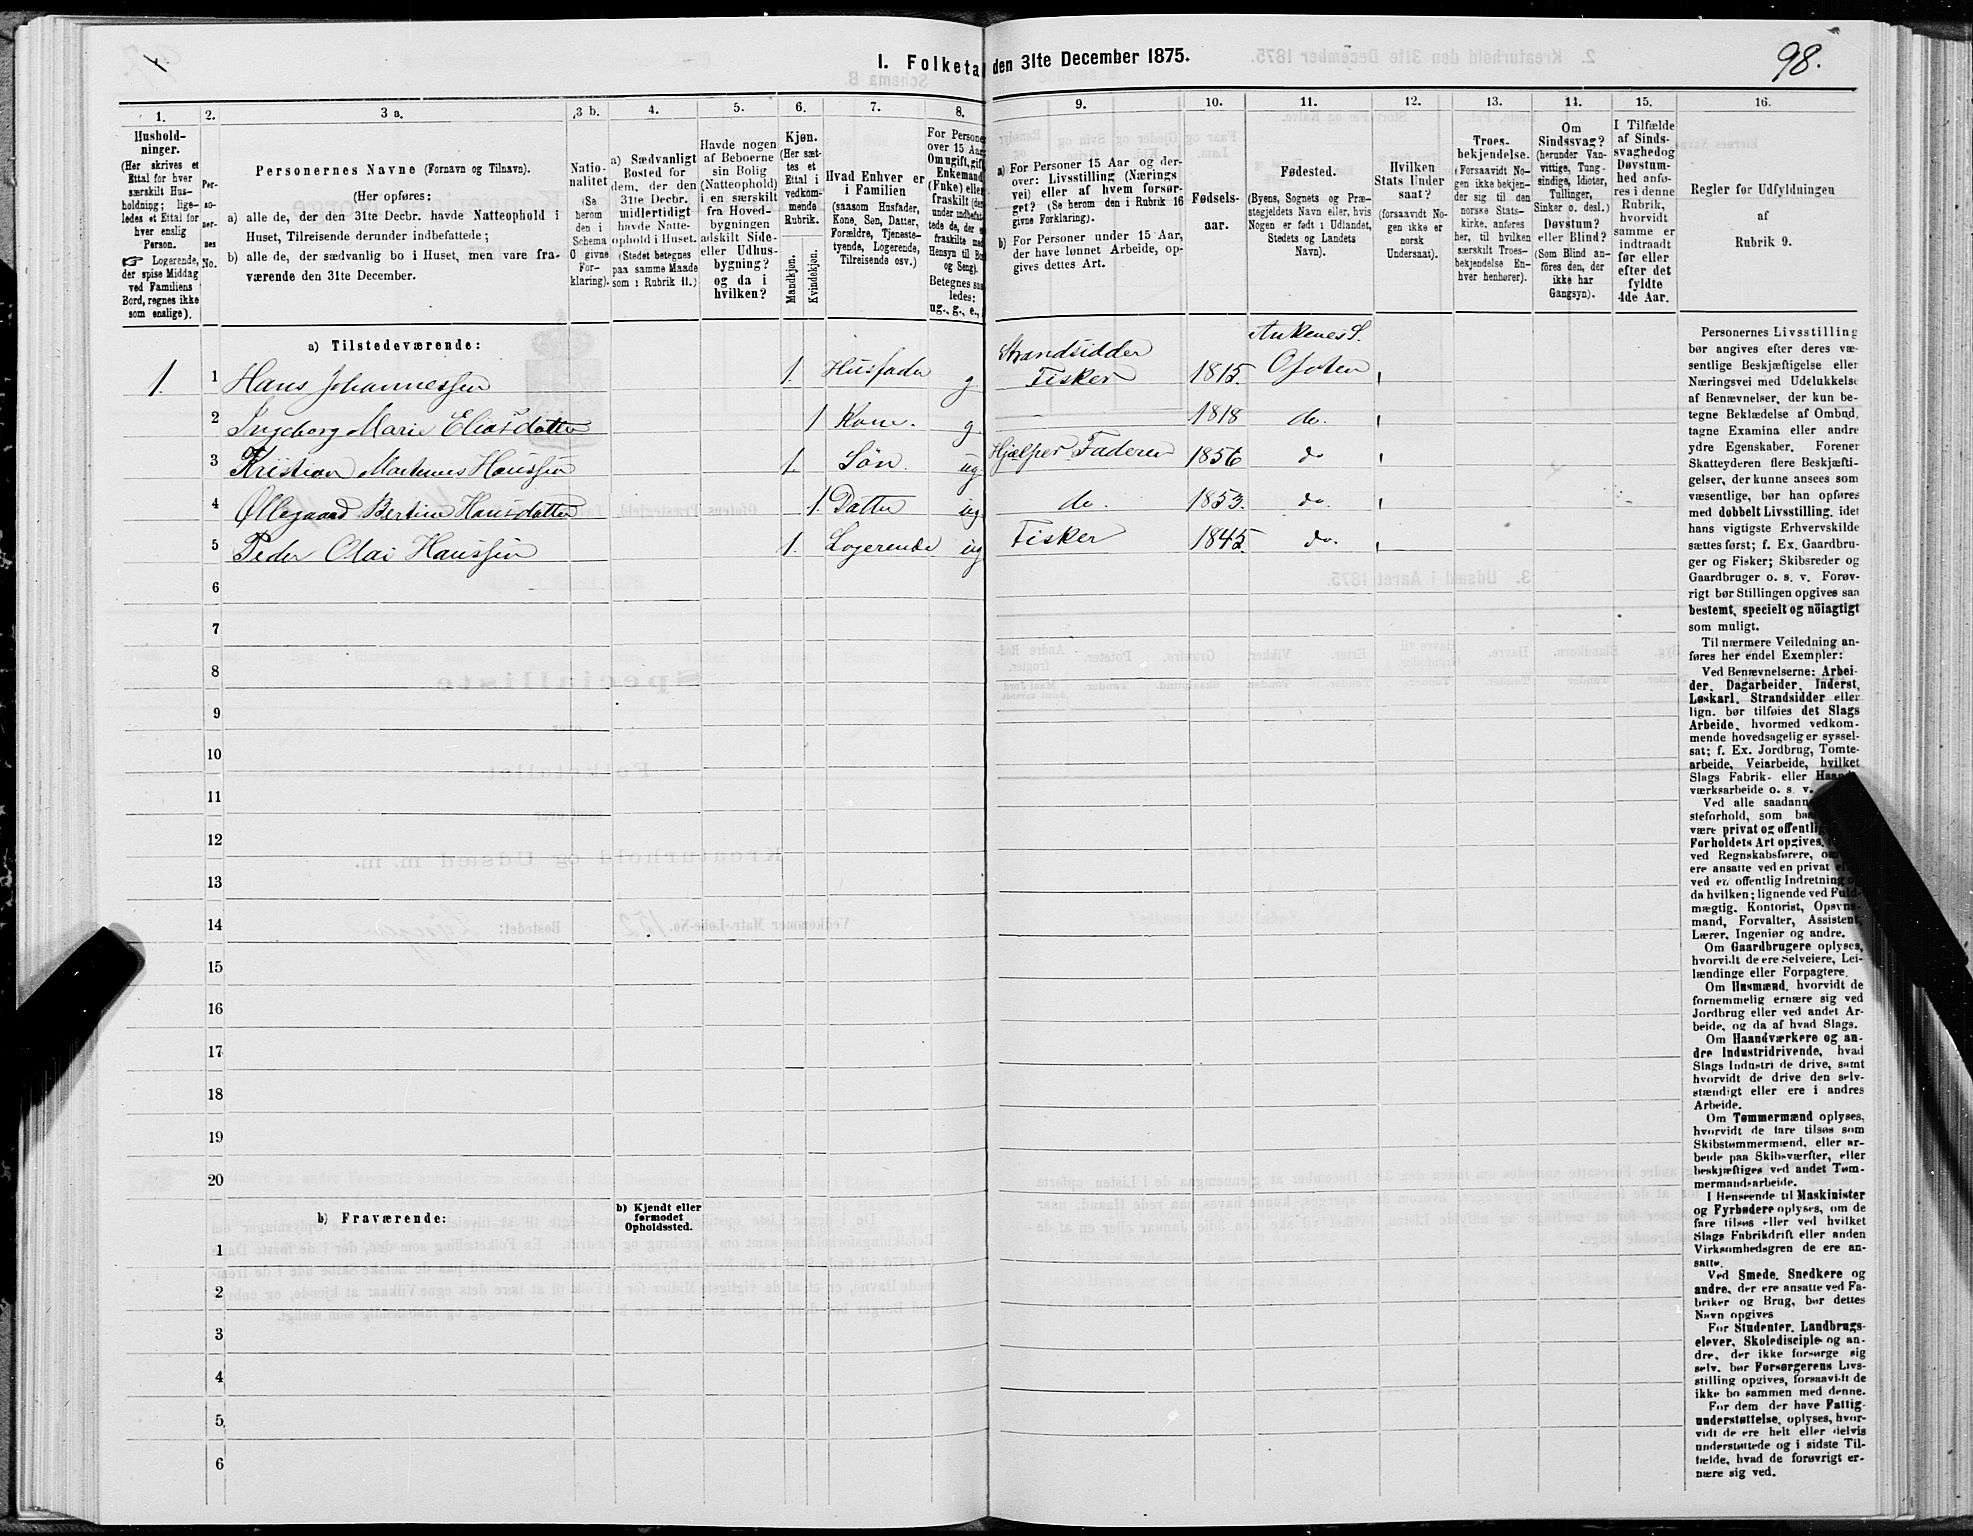 98.
I. Folketal den 31te December 1875.
1. 2. 3 a. 3 b. 4. 5. 6. 7. 8. 9. 10. 11. 12. 13. 14. 15. 16.
Hushold-
ninger.
(Her skrives et
Ettal for hver
særskilt Hus-
holdning; lige-
ledes et Ettal for
hver enslig
Person.
☞ Logerende,
der spise Middag
ved Familiens
Bord, regnes ikke
som enslige).
Per-
so-
ner-
nes
No.
Personernes Navne (Fornavn og Tilnavn).
(Her opføres:
a) alle de, der den 31te Decbr. havde Natteophold i
Huset, Tilreisende derunder indbefattede;
b) alle de, der sædvanlig bo i Huset, men vare fra-
værende den 31te December.
Natio-
nalitet
(Se
herom
den i
Schema
O givne
For-
klaring).
a) Sædvanligt
Bosted for
dem, der den
31te Decbr.
midlertidigt
havde Natte-
ophold i Huset.
(Stedet betegnes
paa samme Maade
som i Rubrik 11.)
Havde nogen
af Beboerne
sin Bolig
(Natteophold)
i en særskilt
fra Hoved-
bygningen
adskilt Side-
eller Udhus-
bygning?
og da i
hvilken?
Kjøn.
(Her sæt-
tes et
Ettal i
vedkom-
mende
Rubrik.
Mandkjøn.
Kvindekjøn.
Hvad Enhver er
i Familien
(saasom Husfader,
Kone, Søn, Datter,
Forældre, Tjeneste-
tyende, Logerende,
Tilreisende osv.)
For Persone
over 15 Aar
Om ugift, gift
Enkemand
(Fnke) eller
fraskilt (der
under indbefat-
tede de, der e
fraskilte med
Hensyn til Bo
og Seng).
Betegnes saa
ledes:
ug., g., e.,
a) For Personer 15 Aar og der-
over: Livsstilling (Nærings
vei) eller af hvem forsør-
get? (Se herom den i Rubrik 16
givne Forklaring).
b) For Personer under 15 Aar,
der have lønnet Arbeide, op-
gives dettes Art.
Fødsels-
aar.
Fødested.
(Byens, Sognets og Præ-
stegjeldets Navn eller, hvis
Nogen er født i Udlandet,
Stedets og Landets
Navn).
Hvilken
Stats Under
saat?
(forsaavidt No-
gen ikke er
norsk
Undersaat).
Troes-
bekjendelse.
(Forsaavidt No-
gen ikke bekjen-
der sig til den
norske Stats-
kirke, anføres
her, til hvilken
særskilt Troes-
bekjendelse En-
hver henhører).
Om
Sindssvag?
(herunder Van-
vittige, Tung-
sindige, Idioter,
Tullinger,
Sinker o. desl.)
Døvstum?
eller Blind?
(Som Blind an-
føres den, der
ikke har
Gangsyn).
I Tilfælde
af Sinds-
svaghed og
Døvstum-
hed anfø-
res i denne
Rubrik,
hvorvidt
samme er
indtraadt
før eller
efter det
fyldte
4de Aar.
Regler for Udfyldningen
af
Rubrik 9.
a) Tilstedeværende:
1. 1 Hans Johannessen 1. Husfader g Strandsidder Fisker 1815. Ankenes S. Ofoten
2 Ingeborg Marie Eliasdatter 1 Kone. g. 1818 do.
3 Kristian Martenus Hanssen 1 Søn. ug. Hjælper Faderen 1856 do
4 Øllegaard Bertine Hansdatter 1. Datter ug do. 1853. do.
5 Peder Olai Hanssen 1. Logerende ug Fisker 1845. do.
6
7
8
9
10
11
12
13
14
15
16
17
18
19
20
b) Fraværende:
b) Kjendt eller
formodet
Opholdssted.
1
2
3
4
5
6
Personernes Livsstilling
bør angives efter deres væ-
sentlige Beskjæftigelse eller
Næringsvei med Udelukkelse
af Benævnelser, der kun be-
tegne Beklædelse af Ombud,
tagne Examina eller andre
ydre Egenskaber. Forener
Skatteyderen flere Beskjæfti-
gelser, der kunne ansees som
væsentlige, bør han opføres
med dobbelt Livsstilling, idet
hans vigtigste Erhvervskilde
sættes først; f. Ex. Gaardbru-
ger og Fisker; Skibsreder og
Gaardbruger o. s. v. Forøv-
rigt bør Stillingen opgives saa
bestemt, specielt og nöiagtigt
som muligt.
Til nærmere Veiledning an-
føres her endel Exempler:
Ved Benævnelserne: Arbei-
der, Dagarbeider, Inderst,
Løskarl, Strandsidder eller
lign. bør tilføies det Slags
Arbeide, hvormed vedkom-
mende hovedsagelig er syssel-
sat; f. Ex. Jordbrug, Tomte-
arbeide, Veiarbeide, hvilket
Slags Fabrik- eller Haand-
værksarbeide o. s. v.
Ved alle saadanne
steforhold, som
være privat og offentlig
Forholdets Art opgives,
ved Regnskabsførere,
ere ansatte ved en privat
ved en offentlig Indretning
da hvilken; lignende ved Fuld-
mægtig, Kontorist, Opsyns-
mand, Forvalter, Assistent,
Lærer, Ingeniør og andre.
Om Gaardbrugere oplyses,
hvorvidt de ere Selveiere, Lei-
lændinge eller Forpagtere.
Om Husmænd, hvorvidt de
fornemmelig ernære sig ved
Jordbrug eller ved andet Ar-
beide, og da af hvad Slags.
Om Haandværkere og an-
dre Industridrivende, hvad
Slags Industri de drive, samt
hvorvidt de drive den selv-
stændigt eller ere i andres
Arbeide.
Om Tømmermænd oplyses,
hvorvidt de fare tilsøs som
Skibstømmermænd, eller ar-
beide paa Skibsværfter, eller
beskjæftiges ved andet Tøm-
mermandsarbeide.
I Henseende til Maskinister
og Fyrbødere oplyses, om de
fare tilsøs eller ved hvilket
Slags Fabrikdrift eller anden
Virksomhedsgren de ere an-
satte.
Ved Smede, Snedkere og
andre, der ere ansatte ved Fa-
briker og Brug, bør dettes
Navn opgives
For Studenter, Landbrugs-
elever, Skoledisciple og an-
dre, der ikke forsørge sig
selv, bør Forsørgerens Livs-
stilling opgives, forsaavidt de
ikke bo sammen med denne.
For dem der have Fattig-
understøttelse, oplyses, hvor-
vidt de ere helt eller delvis
understøttede og i sidste Til-
fælde, hvad de forøvrigt er-
nære sig ved.